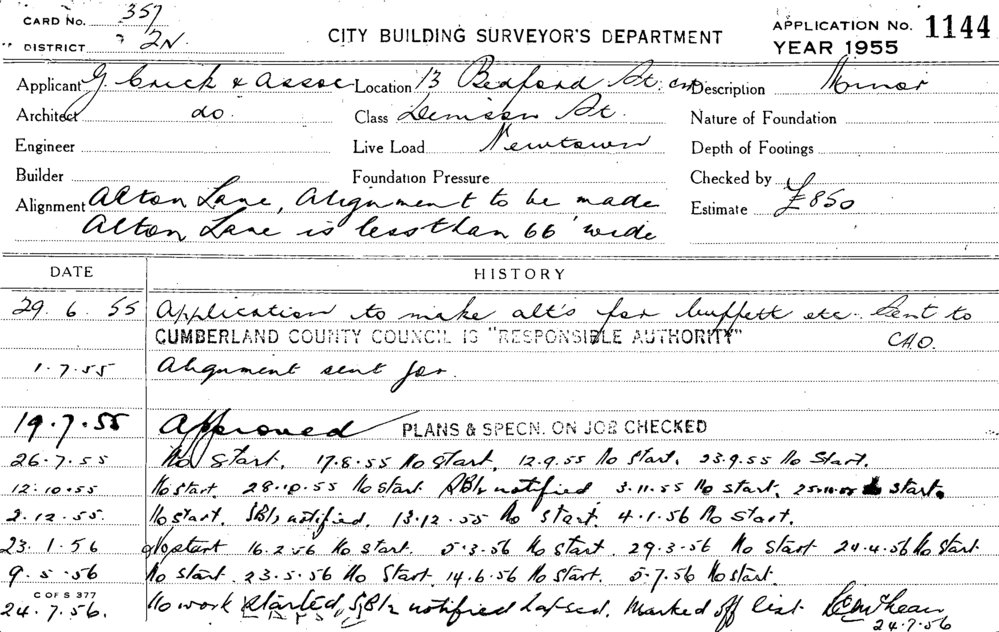 CARD No. 357
DISTRICT 2N.
CITY BUILDING SURVEYOR'S DEPARTMENT
APPLICATION No. 1144
YEAR 1955
Applicant G. Crick & Assoc Location 13 Bedford St. cnr Description Minor
Architect do. Class Denison St. Nature of Foundation
Engineer Live Load Newtown Depth of Footings
Builder Foundation Pressure Checked by
Alignment Alton Lane, Alignment to be made Estimate £850
Alton Lane is less than 66' wide
DATE HISTORY
29.6.55 Application to make alt's for buffett etc. Sent to
CUMBERLAND COUNTY COUNCIL IS "RESPONSIBLE AUTHORITY" C.H.O.
1.7.55 Alignment sent for.
19.7.55 Approved PLANS & SPECN. ON JOB CHECKED
26.7.55 No start. 17.8.55 No start. 12.9.55 No start. 23.9.55 No Start.
12.10.55 No start. 28.10.55 No start notified 3.11.55 No start. 25.11.55 No start.
2.12.55. No start. notified. 13.12.55 No start. 4.1.56 No start.
23.1.56 No start 16.2.56 No start. 5.3.56 No start. 29.3.56 No start 24.4.56 No start
9.5.56 No start. 23.5.56 No start. 14.6.56 No start. 5.7.56 No start.
C OF S 377
24.7.56. No work started, notified Lapsed. Marked off list
24.7.56